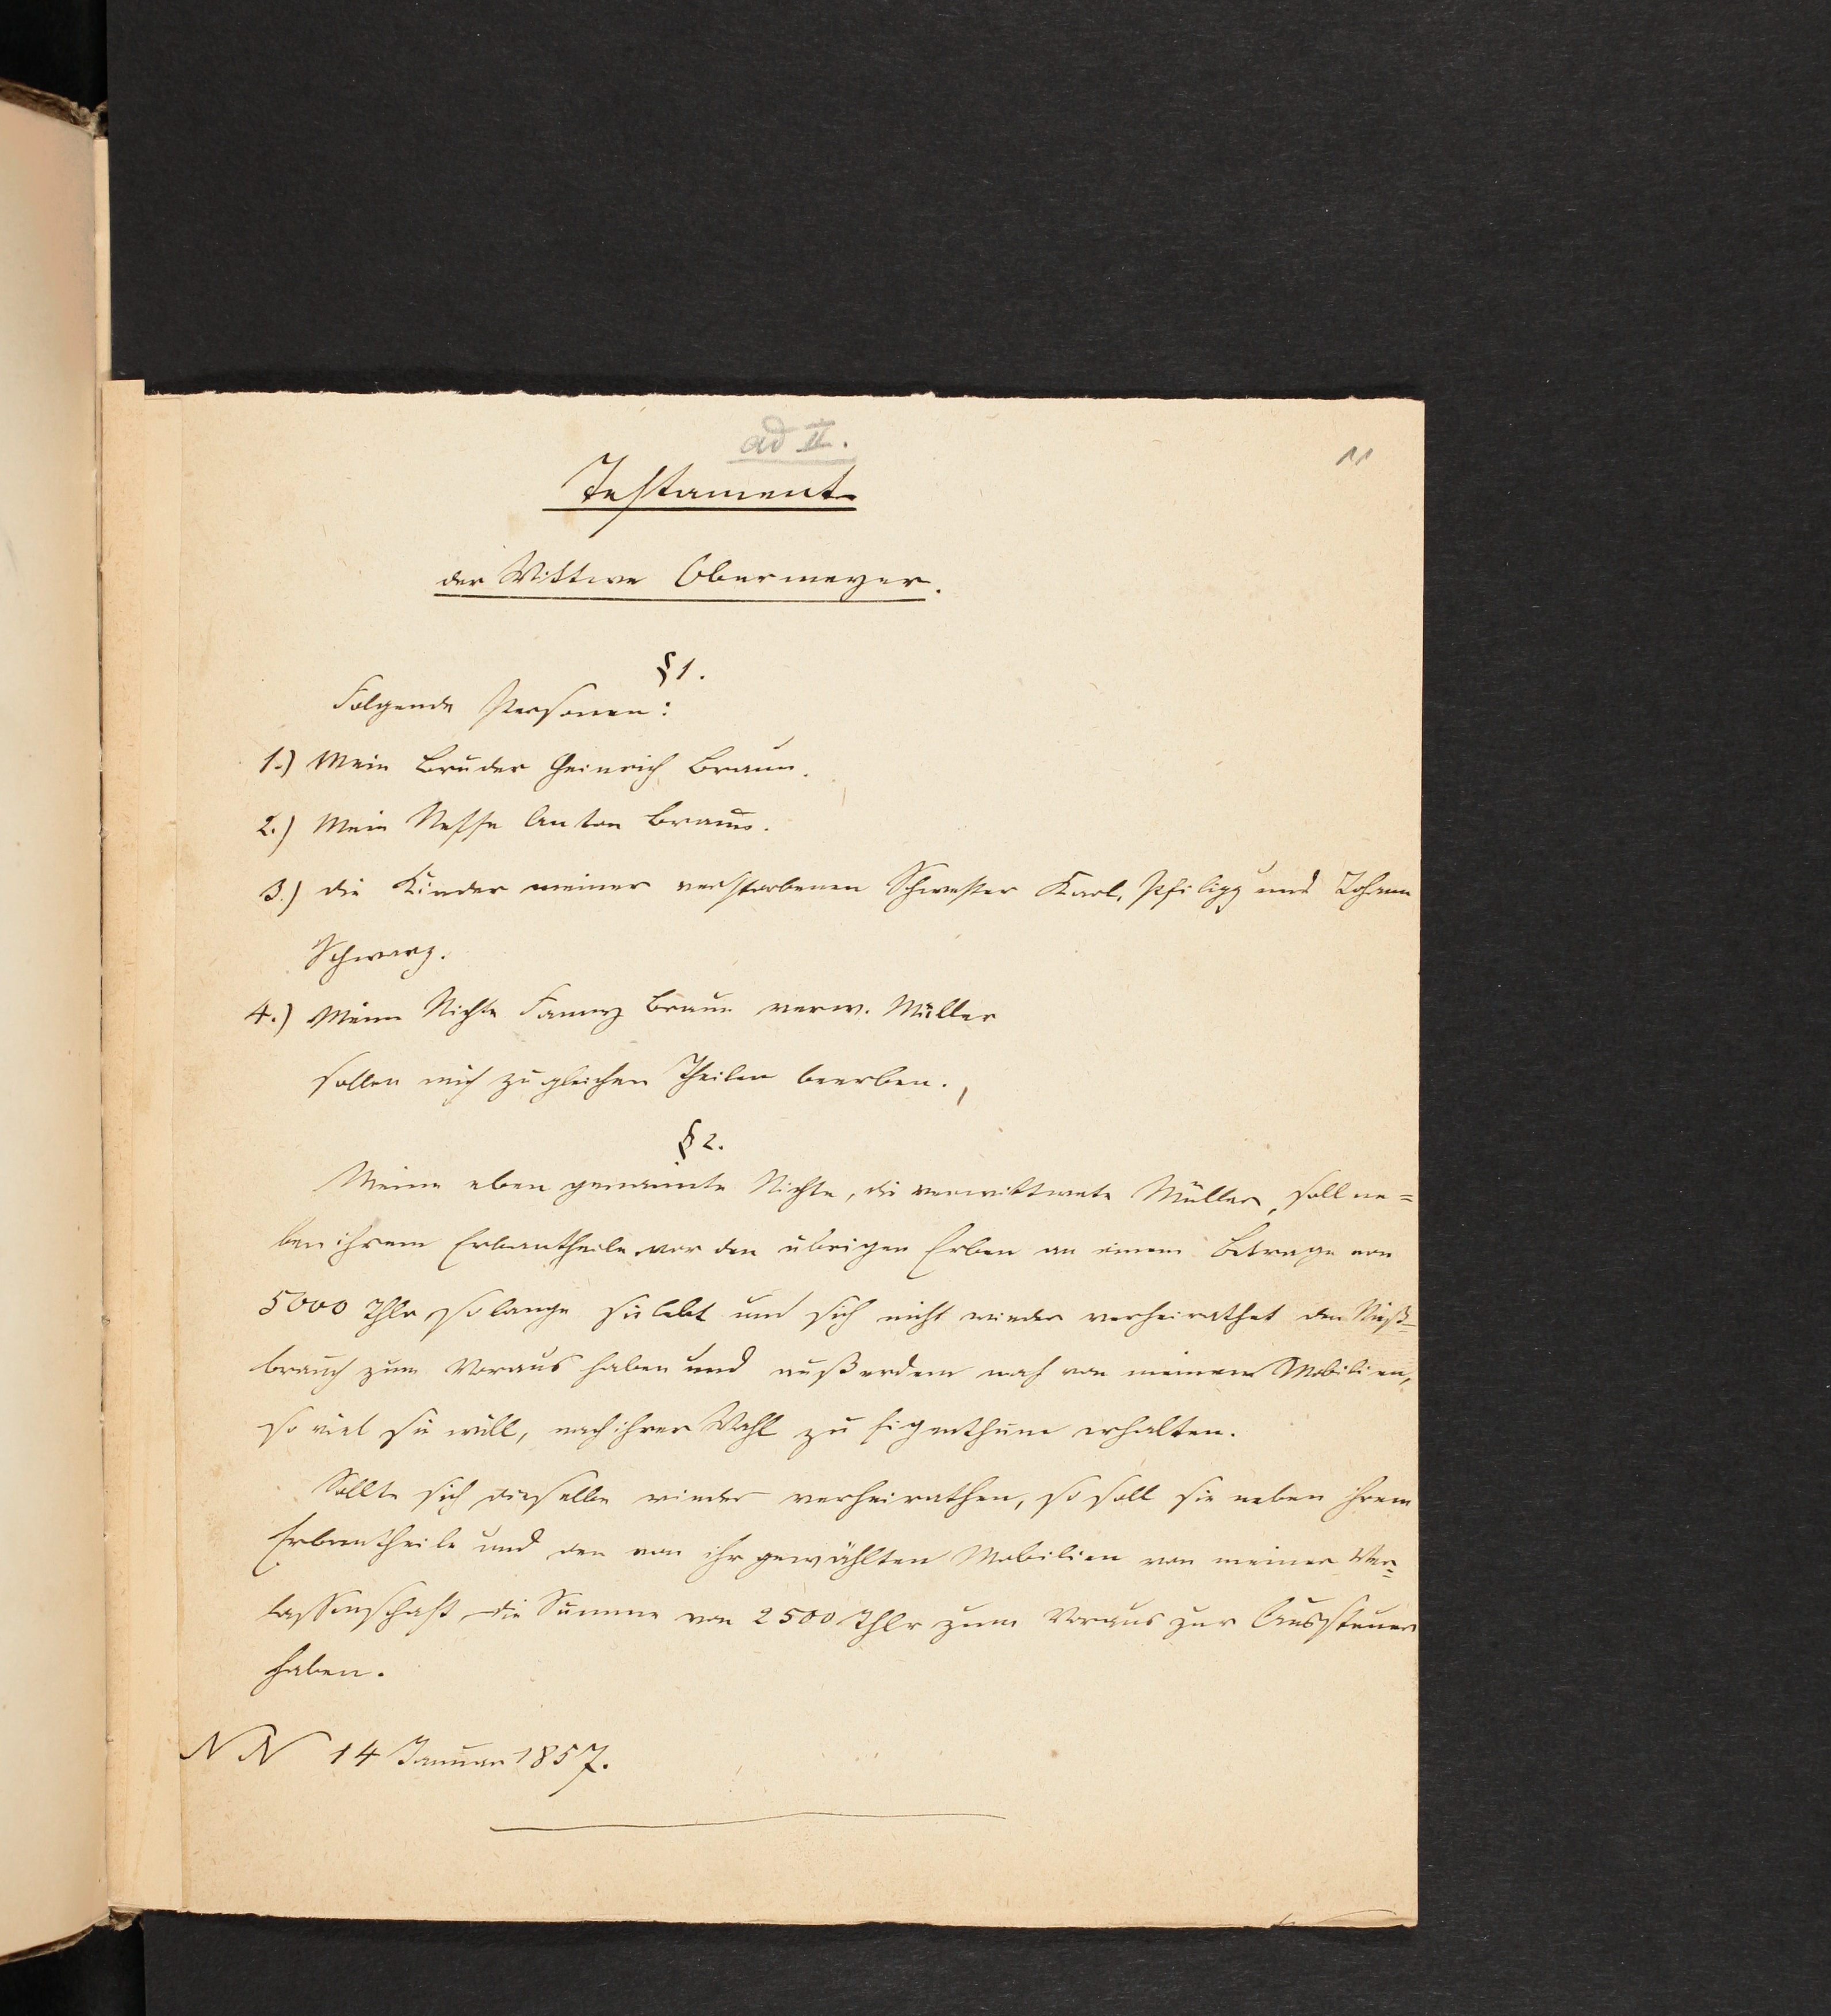 ad II.
11
Testament
der Wittwe Obermeyer.
§ 1.
Folgende Personen:
1.) Mein Bruder Heinrich Braun.
2.) Mein Neffe Anton Braun.
3.) die Kinder meiner verstorbenen Schwester Karl, Philipp und Johann
Schwarz.
4.) Meine Nichte Fanny Braun verw. Müller
sollen mich zu gleichen Theilen beerben.
§ 2.
Meine eben genannte Nichte, die verwittwete Müller, soll ne=
ben ihrem Erbantheile vor den übrigen Erben an einem Betrage von
5000 Thlr so lange sie lebt und sich nicht wieder verheirathet den Nieß=
brauch zum Voraus haben und außerdem noch von meinen Mobilien,
so viel sie will, nach ihrer Wahl zu Eigenthum erhalten.
Sollte sich dieselbe wieder verheirathen, so soll sie neben ihrem
Erbantheile und den von ihr gewählten Mobilien von meiner Ver=
lassenschaft die Summe von 2500 Thlr zum Voraus zur Aussteuer
haben.
N N 14 Januar 1857.